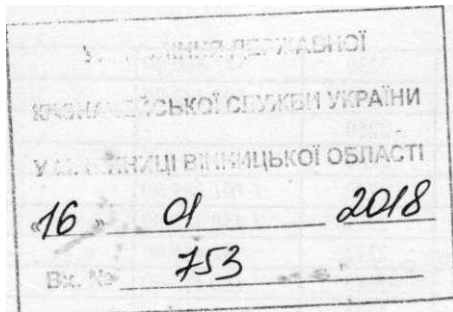 УПРАВЛІННЯ ДЕРЖАВНОЇ
КАЗНАЧЕЙСЬКОЇ СЛУЖБИ УКРАЇНИ
У М. ВІННИЦІ ВІННИЦЬКОЇ ОБЛАСТІ
"16" 01 2018
Вх. № 753